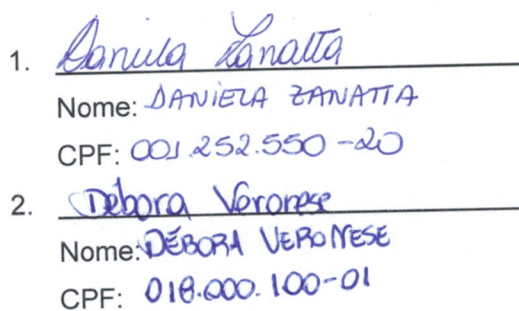 1. Daniela Zanatta
Nome: DANIELA ZANATTA
CPF: 001.252.550-20
2. Débora Veronese
Nome: DÉBORA VERONESE
CPF: 018.000.100-01